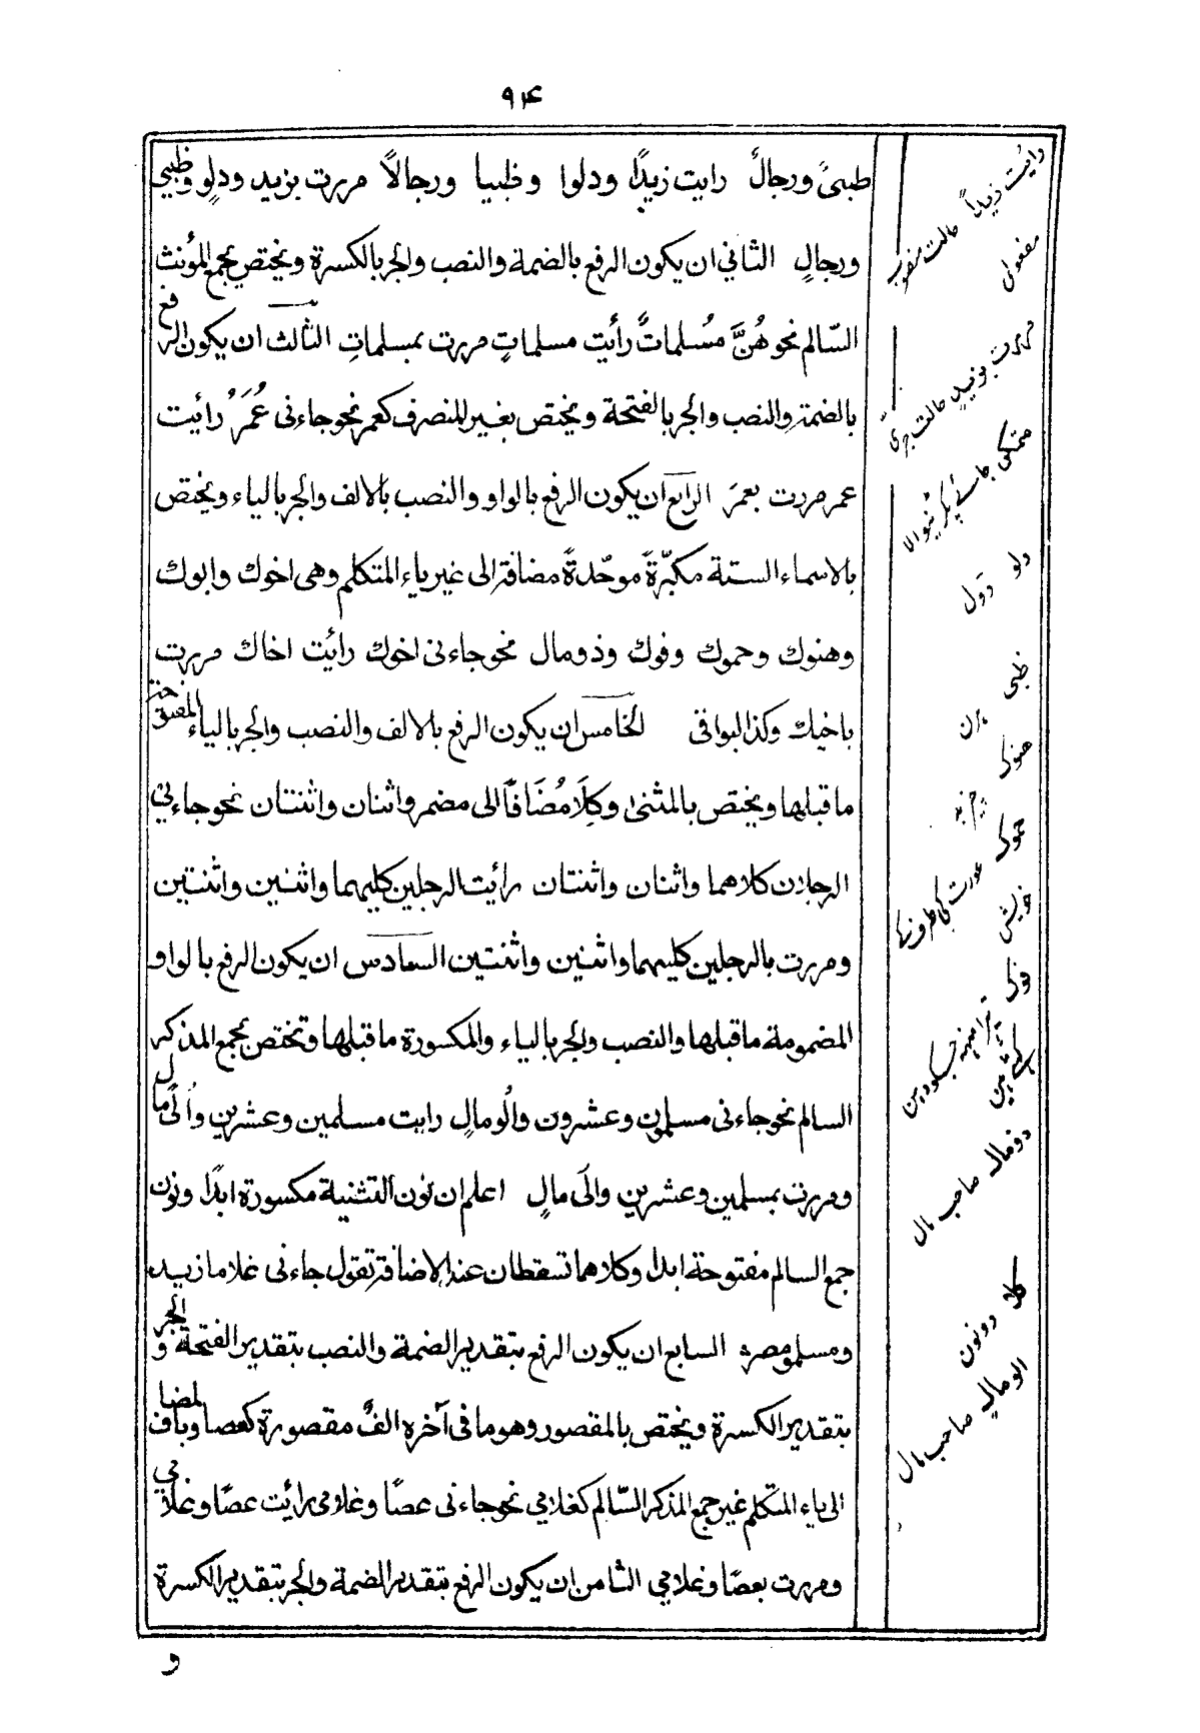 ۹۴
ظبیٌ ورجالٌ رایت زیدًا ودلوا وظبیا ورجالاً مررت بزید ودلوٍ وظبیٍ
ورجالٍ الثانی ان یکون الرفع بالضمة والنصب والجر بالکسرة ویختص بجمع المؤنث
السّالم نحو هُنَّ مُسْلماتٌ رأیت مسلماتٍ مررت بمسلماتٍ الثالث ان یکون الرفع
بالضمة والنصب والجر بالفتحة ویختص بغیر المنصرف کعمر نحو جاءنی عُمَرُ رائیت
عمر مررت بعمرَ الرابع ان یکون الرفع بالواو والنصب بالالف والجر بالیاء ویختص
بالاسماء الستة مکبّرةً موحّدةً مضافة الی غیر یاء المتکلم وهی اخوك وابوك
وهنوك وحموك وفوك وذومال نحو جاءنی اخوك رائیت اخاك مررت
باخیك وکذا البواقی الخامس ان یکون الرفع بالالف والنصب والجر بالیاء المفتوحة
ماقبلها ویختص بالمثنیٰ وکِلَا مُضَافًا الی مضمر واثنان واثنتان نحو جاءنی
الرجلان کلاهما واثنان واثنتان رائیت الرجلین کلیهما واثنین واثنتین
ومررت بالرجلین کلیهما واثنین واثنتین السادس ان یکون الرفع بالواو
المضمومة ماقبلها والنصب والجر بالیاء والمکسورة ماقبلها وتختص بجمع المذکر
السالم نحو جاءنی مسلمون وعشرون واُلومالٍ رایت مسلمین وعشرین واُلی مال
ومررت بمسلمین وعشرین والَی مالٍ اعلم ان نون التثنیة مکسورة ابدًا ونون
جمع السالم مفتوحة ابدا وکلاهما تسقطان عند الاضافة تقول جاءنی غلاما زید
ومسلمو مصر السابع ان یکون الرفع بتقدیر الضمة والنصب بتقدیر الفتحة والجر
بتقدیر الکسرة ویختص بالمقصور وهو ما فی آخره الفٌ مقصورة کعصا وبالمضاف
الی یاء المتکلم غیر جمع المذکر السّالم کغلامی نحو جاءنی عصًا وغلامی رائیت عصًا وغلامی
ومررت بعصًا وغلامی الثامن ان یکون الرفع بتقدیر الضمة والجر بتقدیر الکسرة
و
رائیت زیداً حالت منصوب
مفعولی
مررت بزیدٍ حالت جری
متمکن جائے پکڑنیوالا
دلو ڈول
ظبی ہرن
هنوک
حموک عورت کی طرف
خویش
فوک تیرا منہ جسکو دہن
کہتے ہیں
ذومال صاحب مال
کلا دونون
الومالٍ صاحب مال